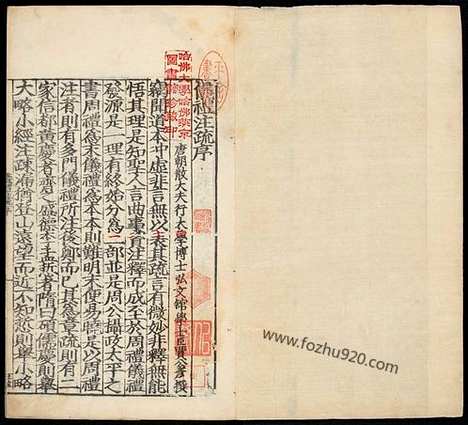 儀禮注疏序
唐朝散大夫行大學博士弘文館學士臣賈公彥撰
竊聞道本冲虛非言無以表其疏言有微妙非釋無能
悟其理是知聖人言曲事資注釋而成至於周禮儀禮
發源是一理有終始分爲二部並是周公攝政太平之
書周禮爲末儀禮爲本本則難明末便易曉是以周禮
注者則有多門儀禮所注後鄭而已其爲章疏則有二
家信都黃慶者齊之盛德李孟悊者隋曰碩儒慶則舉
大略小經注疏漏猶登山遠望而近不知悊則舉小略
哈佛大學哈佛燕京
圖書館珍藏印
www.fozhu920.com